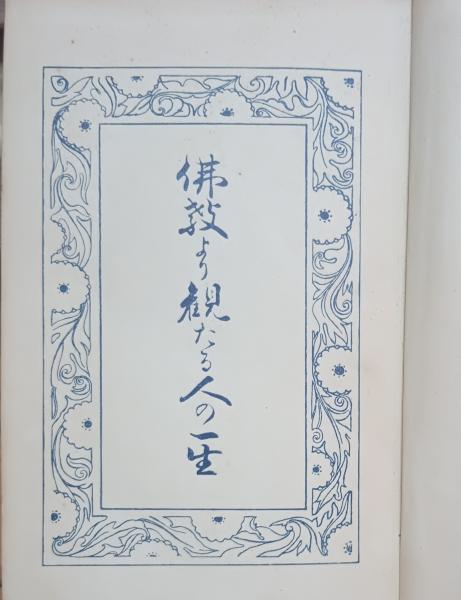 佛教より観たる人の一生